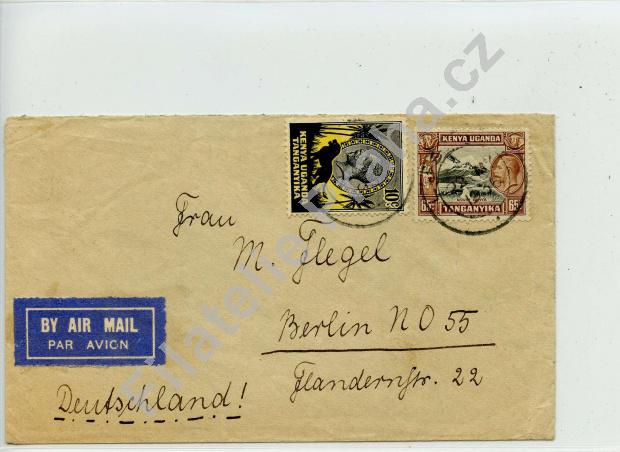 KENYA UGANDA
TANGANYIKA
10c
KENYA UGANDA
65c 65c
TANGANYIKA
Frau
M. Flegel
Berlin NO 55
Flandernstr. 22
BY AIR MAIL
PAR AVION
Deutschland!
Filatelie-Praha.cz